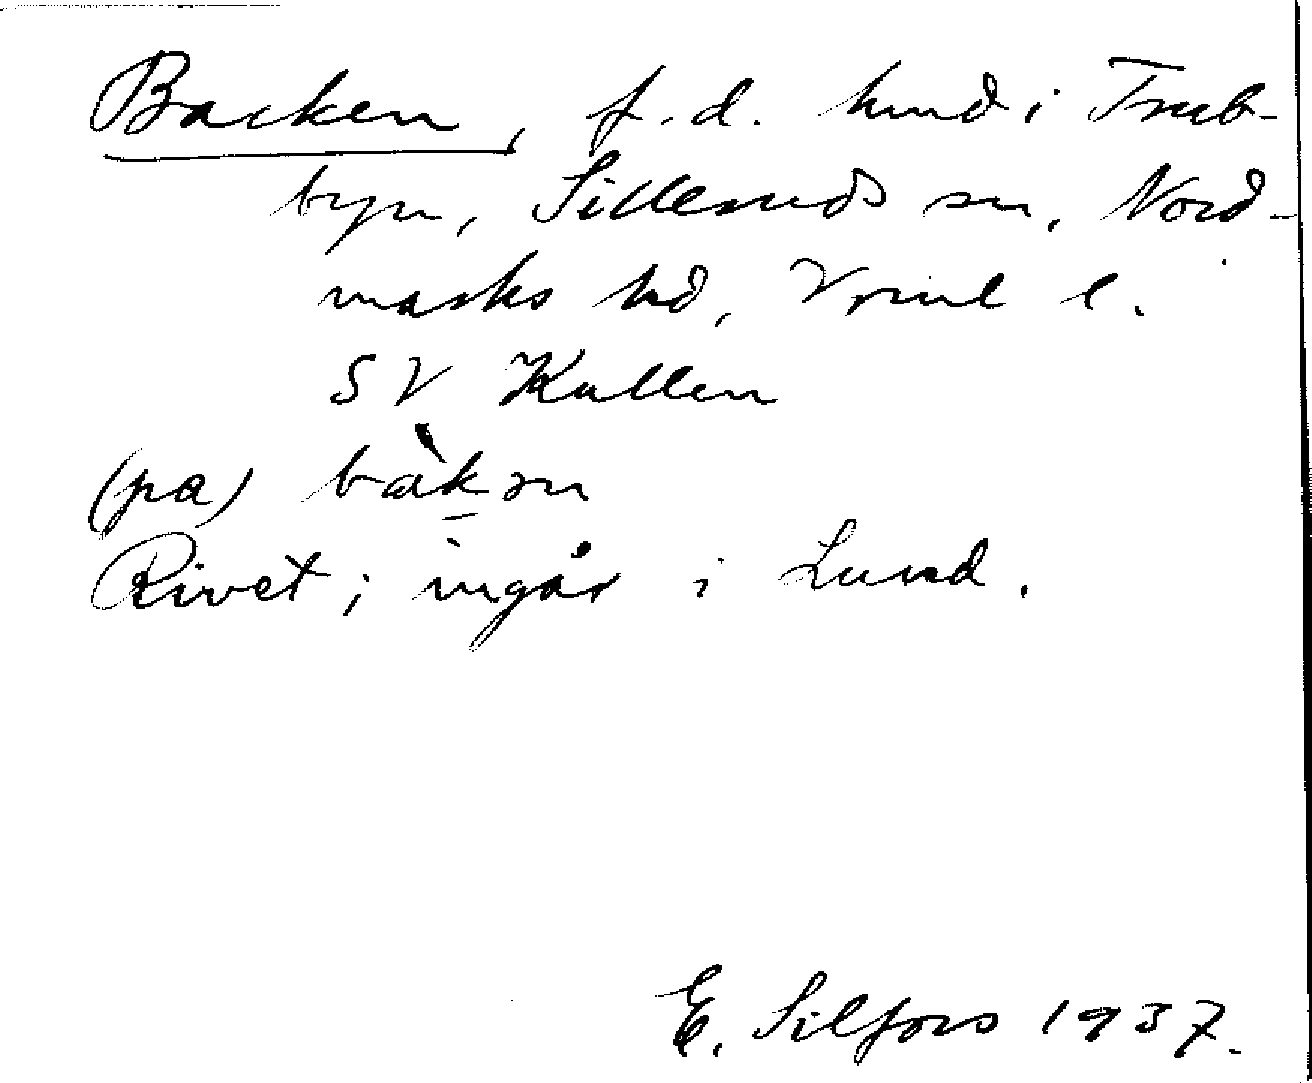 Backen, f.d. hmd i Trub-
byn, Silleruds sn, Nord-
marks hd, Vrml l.
SV Kullen
(pa) bàkɔn
Rivet; ingår i Lund.
E. Silfors 1937.